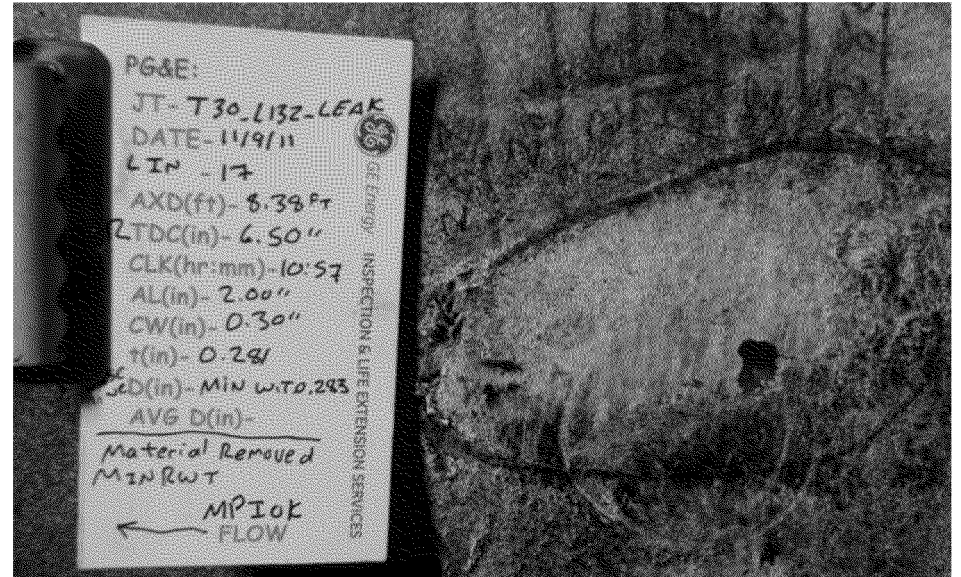 PG&E:
JT- T30_L132_LEAK
DATE- 11/9/11
LIN - 17
AXD(ft)- 8.38 FT
TDC(in)- 6.50"
CLK(hr:mm)- 10:57
AL(in)- 2.00"
CW(in)- 0.30"
t(in)- 0.281
D(in)- MIN W.T 0.283
AVG D(in)-
Material Removed
MIN RWT
MPI OK
FLOW
GE Energy INSPECTION & LIFE EXTENSION SERVICES